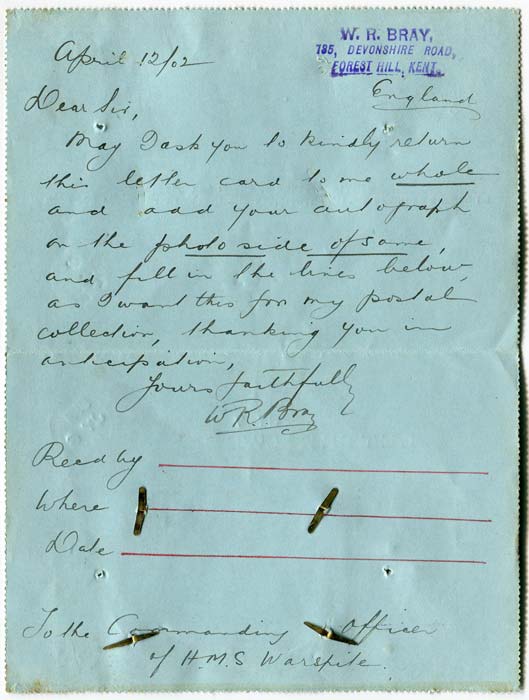 W. R. BRAY,
785, DEVONSHIRE ROAD,
FOREST HILL, KENT.
England
April 12/02
Dear Sir,
May I ask you to kindly return
this letter card to me whole
and add your autograph
on the photo side of same,
and fill in the lines below,
as I want this for my postal
collection, thanking you in
anticipation,
Yours faithfully
W R. Bray
Recd by
Where
Date
To the Commanding Officer
of H.M.S Warspite.